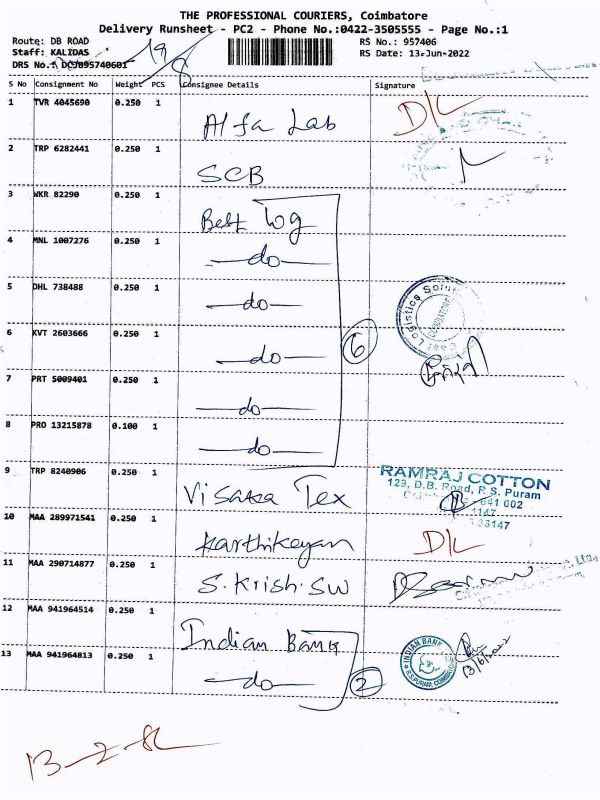 THE PROFESSIONAL COURIERS, Coimbatore
Delivery Runsheet - PC2 - Phone No.:0422-3505555 - Page No.:1
Route: DB ROAD RS No.: 957406
Staff: KALIDAS RS Date: 13-Jun-2022
DRS No.: DCJB95740601
S No Consignment No Weight PCS Consignee Details Signature
1 TVR 4045690 0.250 1 Alfa Lab D/L
2 TRP 6282441 0.250 1 SCB
3 WKR 82290 0.250 1 Best log
4 MNL 1007276 0.250 1 -do-
5 DHL 738488 0.250 1 -do-
6 KVT 2603666 0.250 1 -do- 6
7 PRT 5009401 0.250 1 -do-
8 PRO 13215878 0.100 1 -do-
9 TRP 8240906 0.250 1 Visaka Tex
RAMRAJ COTTON
123, D.B. Road, R.S. Puram
641 002
10 MAA 289971541 0.250 1 Karthikeyan D/L
11 MAA 290714877 0.250 1 S.Krish.SW
12 MAA 941964514 0.250 1 Indian Bank
13 MAA 941964813 0.250 1 -do- 2
INDIAN BANK
R.S.PURAM, COIMBATORE
13/6/2022